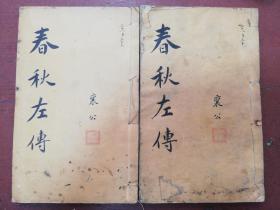 春秋左傳
襄公
春秋左傳
襄公